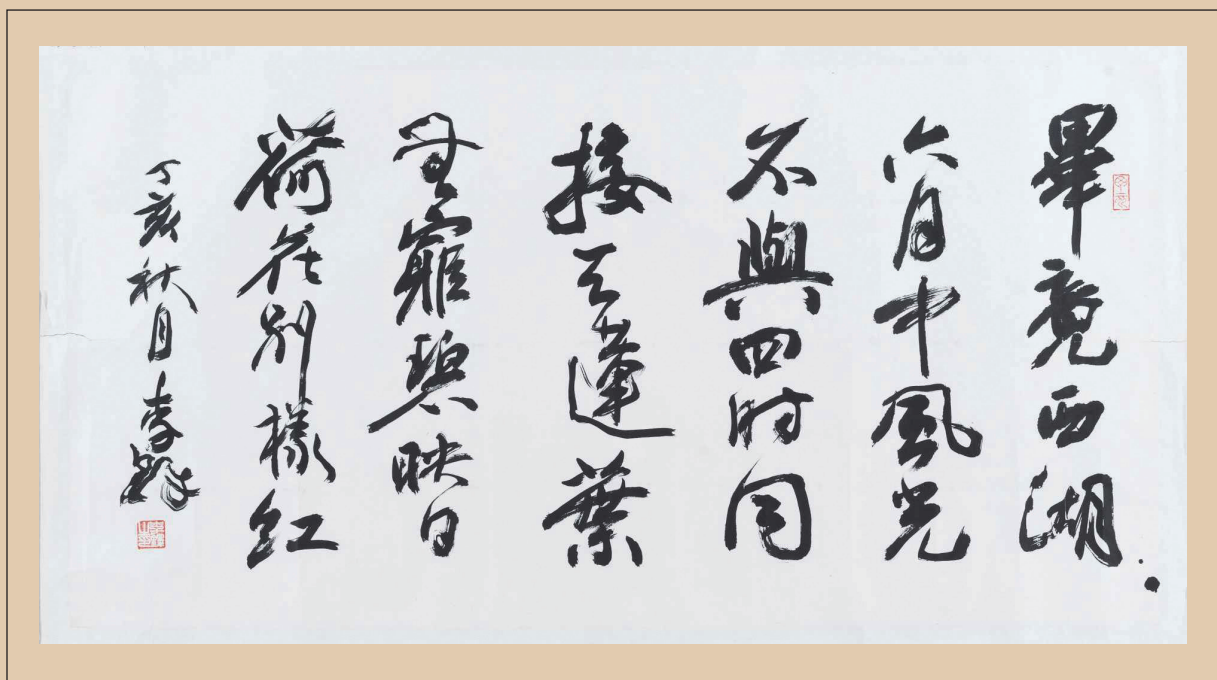 畢竟西湖
六月中風光
不與四时同
接天蓮葉
無窮碧映日
荷花別樣红
丁亥秋月 李鐸